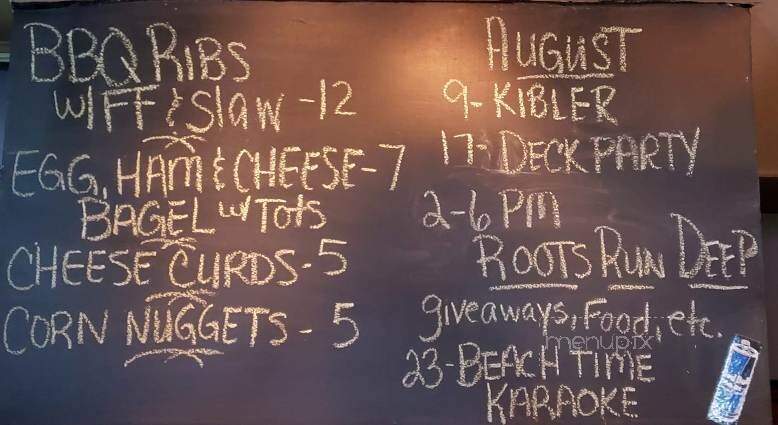 BBQ RIBS
W/FF & Slaw -12
EGG, HAM & CHEESE-7
BAGEL w/ Tots
CHEESE CURDS-5
CORN NUGGETS - 5
AUGUST
9- KIBLER
17- DECK PARTY
2-6 PM
ROOTS RUN DEEP
giveaways, Food, etc.
menupix
23-BEACH TIME
KARAOKE